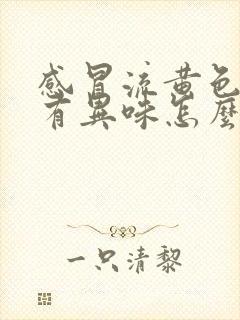 感冒流黄色
有異味怎麼
一只清黎